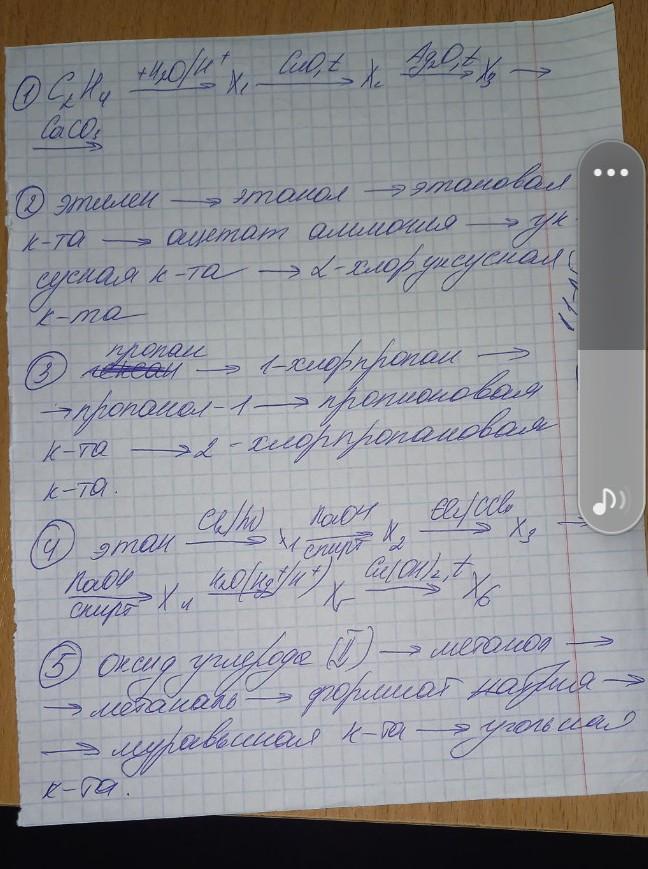 ① C₂H₄ +H₂O/H⁺→ X₁ CuO,t→ X₂ Ag₂O,t→ X₃ →
CaCO₃→
② этилен → этанол → этановая
к-та → ацетат аммония → ук-
сусная к-та → 2-хлоруксусная
к-та
③ пропан → 1-хлорпропан →
→ пропанол-1 → пропионовая
к-та → 2-хлорпропановая
к-та.
④ этан Cl₂/hν→ X1 NaOH спирт→ X₂ Cl₂/CCl₄→ X₃ →
NaOH спирт→ X₄ H₂O(Hg⁺/H⁺)→ X₅ Cu(OH)₂,t→ X6
⑤ Оксид углерода (II) → метанол →
→ метаналь → формиат натрия →
→ муравьиная к-та → угольная
к-та.